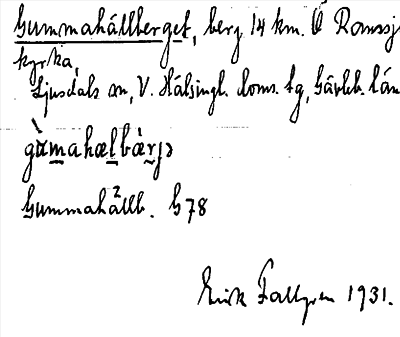 Gummahällberget, berg 14 km. Ö Ramsjö
kyrka,
Ljusdals sn, V. Hälsingl. doms. tg, Gävleb. län
gàmahælbærjɔ
Gummahällb. G78
Erik Fallgren 1931.